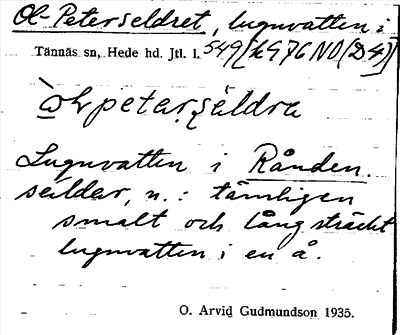 Ol-Peterseldret, lugnvatten i
Tännäs sn, Hede hd. Jtl. l. 549 [k976 NO (D4)]
òḷpetaṣęldra
Lugnvatten i Rånden.
seldər, n.: tämligen
smalt och långsträckt
lugnvatten i en å.
O. Arvid Gudmundson 1935.